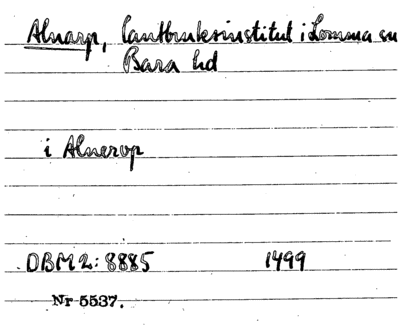 Alnarp, lantbruksinstitut i Lomma sn
Bara hd
i Alnerop
DBM 2: 8885 1499
Nr 5537.